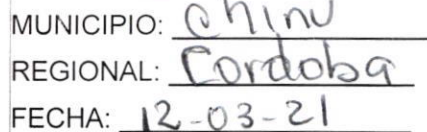 MUNICIPIO: Chinu
REGIONAL: Cordoba
FECHA: 12-03-21